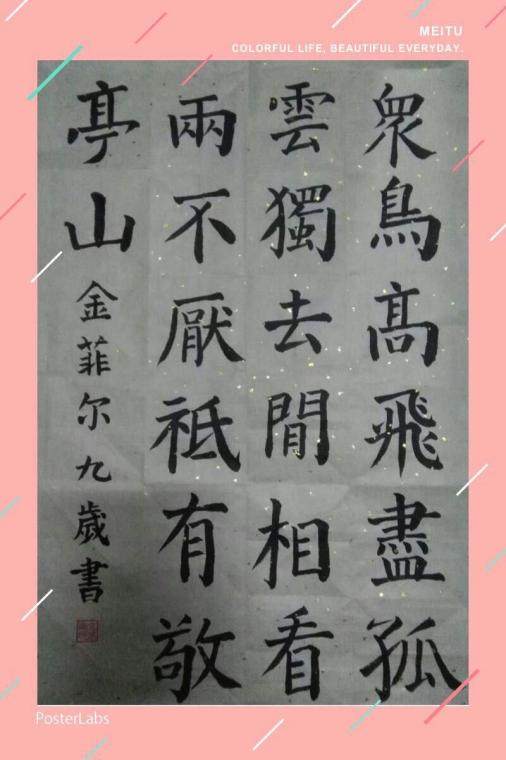 MEITU
COLORFUL LIFE, BEAUTIFUL EVERYDAY.
衆鳥高飛盡孤
雲獨去閒相看
兩不厭祗有敬
亭山
金菲尔九歲書
PosterLabs